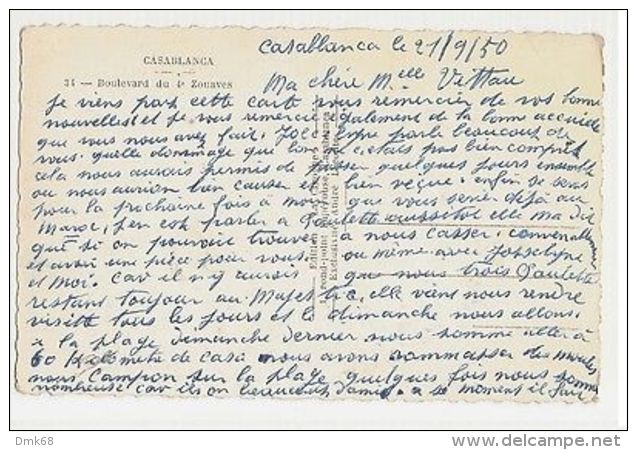 CASABLANCA
34 — Boulevard du 4e Zouaves
Casablanca le 21/9/50
Ma chère Melle Vettau
Je viens par cette carte vous remercier de vos bonne
nouvelles et je vous remercie également de la bonne accueille
que vous nous avez fair. parle beaucoup de
vous. quelle dommage que pas bien compris
cela nous aurais permis de passer quelques jours ensemble
ou nous aurion bien causer et bien veçue. enfin je serais
pour la prochaine fois à mois que vous senier déjà au
Maroc, j'en est parler a Paulette aussitot elle ma dit
que si on pouvoir trouver a nous casser convenablement
et avoir une pièce pour vous. ou même avec Josselyne
et moi. car il n'y aurais que nous trois Paulette
restant toujour au elle vient nous rendre
visette tous les jours et le dimanche nous allons
a la plage dimanche dernier nous somme aller à
60 Kilomètre de casa nous avons rammasser des moules
nous campion sur la plage quelques fois nous somme
nombreuse car ils on beaucoup d'amis. a se moment il fair
Dmk68